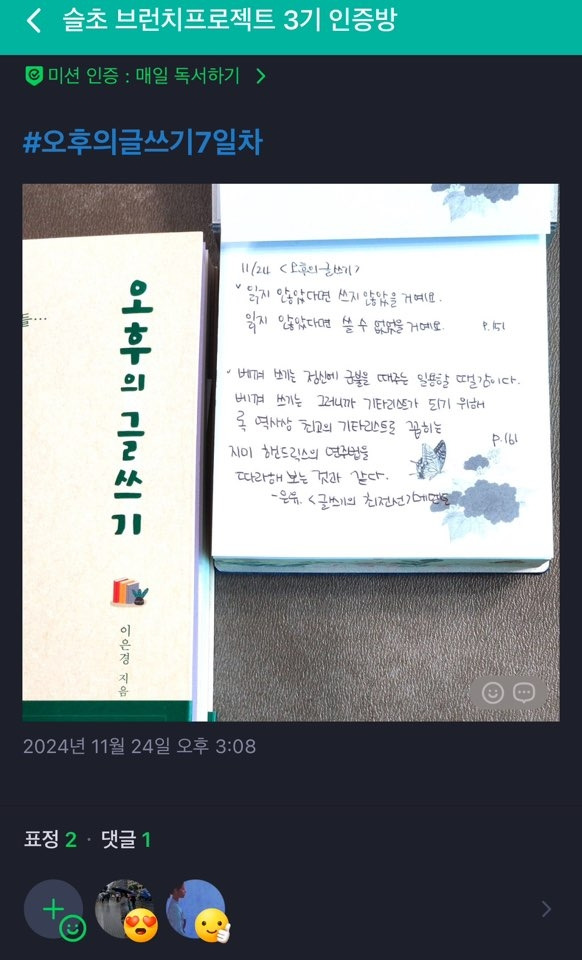 슬초 브런치프로젝트 3기 인증방
미션 인증 : 매일 독서하기
#오후의글쓰기7일차
들…
오후의 글쓰기
이은경 지음
11/24 <오후의 글쓰기>
" 읽지 않았다면 쓰지 않았을 거예요.
읽지 않았다면 쓸 수 없었을 거예요. P.151
" 베껴 쓰기는 정신에 군불을 때주는 일용할 땔감이다.
베껴 쓰기는 그러니까 기타리스트가 되기 위해
록 역사상 최고의 기타리스트로 꼽히는
지미 헨드릭스의 연주법을 P.161
따라해 보는 것과 같다.
-은유. <글쓰기의 최전선>
2024년 11월 24일 오후 3:08
표정 2 · 댓글 1